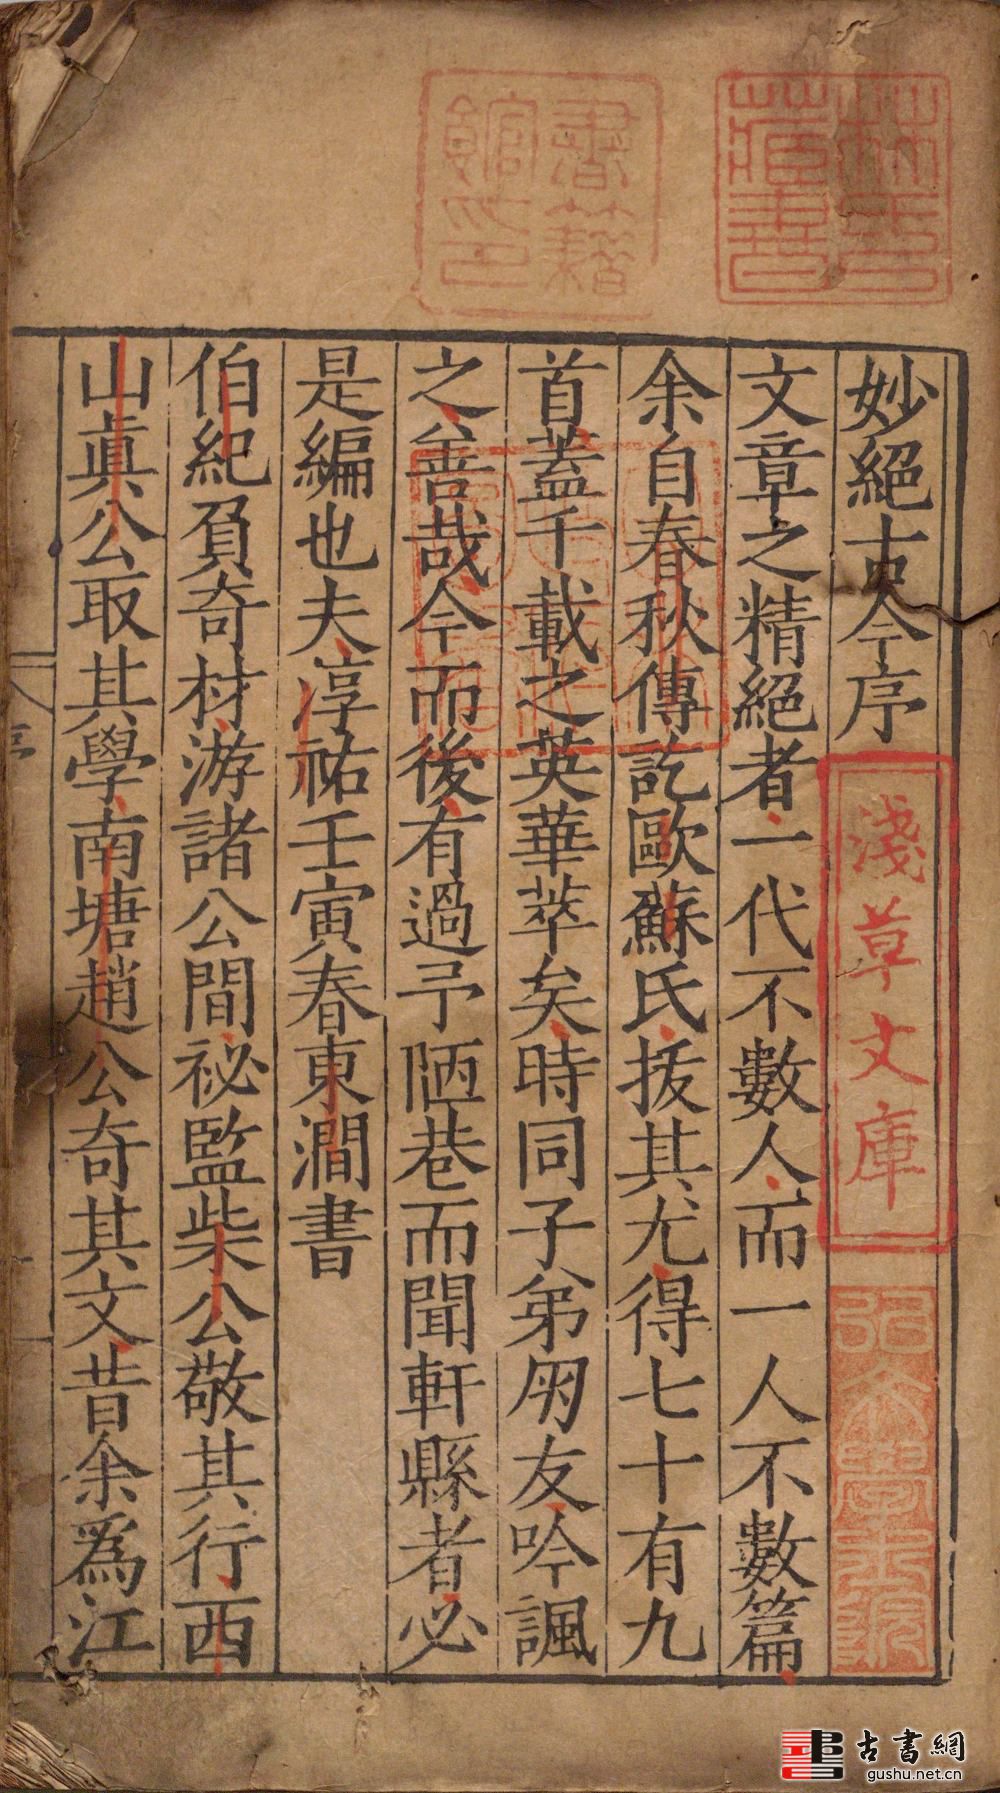 妙絕古今序
文章之精絕者一代不數人而一人不數篇
余自春秋傳訖歐蘇氏拔其尤得七十有九
首蓋千載之英華萃矣時同子弟朋友吟諷
之善哉今而後有過予陋巷而聞軒縣者必
是編也夫淳祐壬寅春東澗書
伯紀負奇材游諸公間祕監柴公敬其行西
山眞公取其學南塘趙公奇其文昔余爲江
林氏藏書
書籍館印
淺草文庫
弘文學士院
古書網
gushu.net.cn